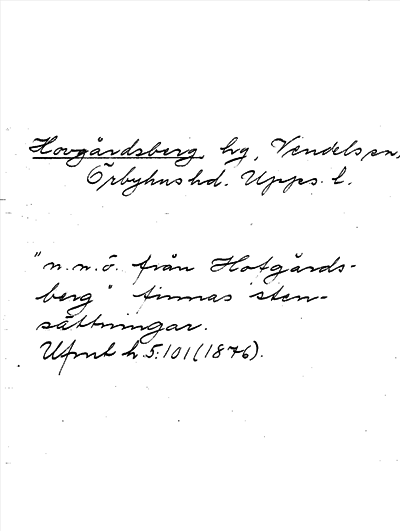 Hovgårdsberg, hg, Vendels sn,
Örbyhus hd. Upps. l.
"n.n.ö. från Hofgårds-
berg" finnas sten-
sättningar.
Ufmt h 5:101 (1876).